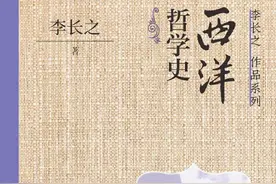 李长之 作品系列
西洋
哲学史
李长之
著